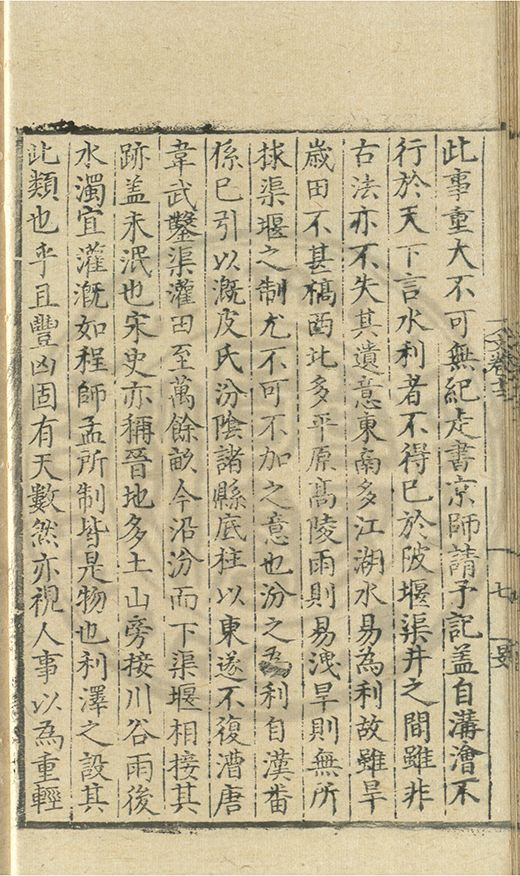 此事重大不可無紀走書京師請予記蓋自溝澮不
行於天下言水利者不得已於陂堰渠井之間雖非
古法亦不失其遺意東南多江湖水易為利故雖旱
歲田不甚槁西北多平原髙陵雨則易洩旱則無所
捄渠堰之制尤不可不加之意也汾之為利自漢番
係已引以溉皮氏汾隂諸縣底柱以東遂不復漕唐
韋武鑿渠灌田至萬餘畝今沿汾而下渠堰相接其
跡盖未泯也宋史亦稱晉地多土山旁接川谷雨後
水濁宜灌溉如程師孟所制皆是物也利澤之設其
此類也乎且豐凶固有天數然亦視人事以為重輕